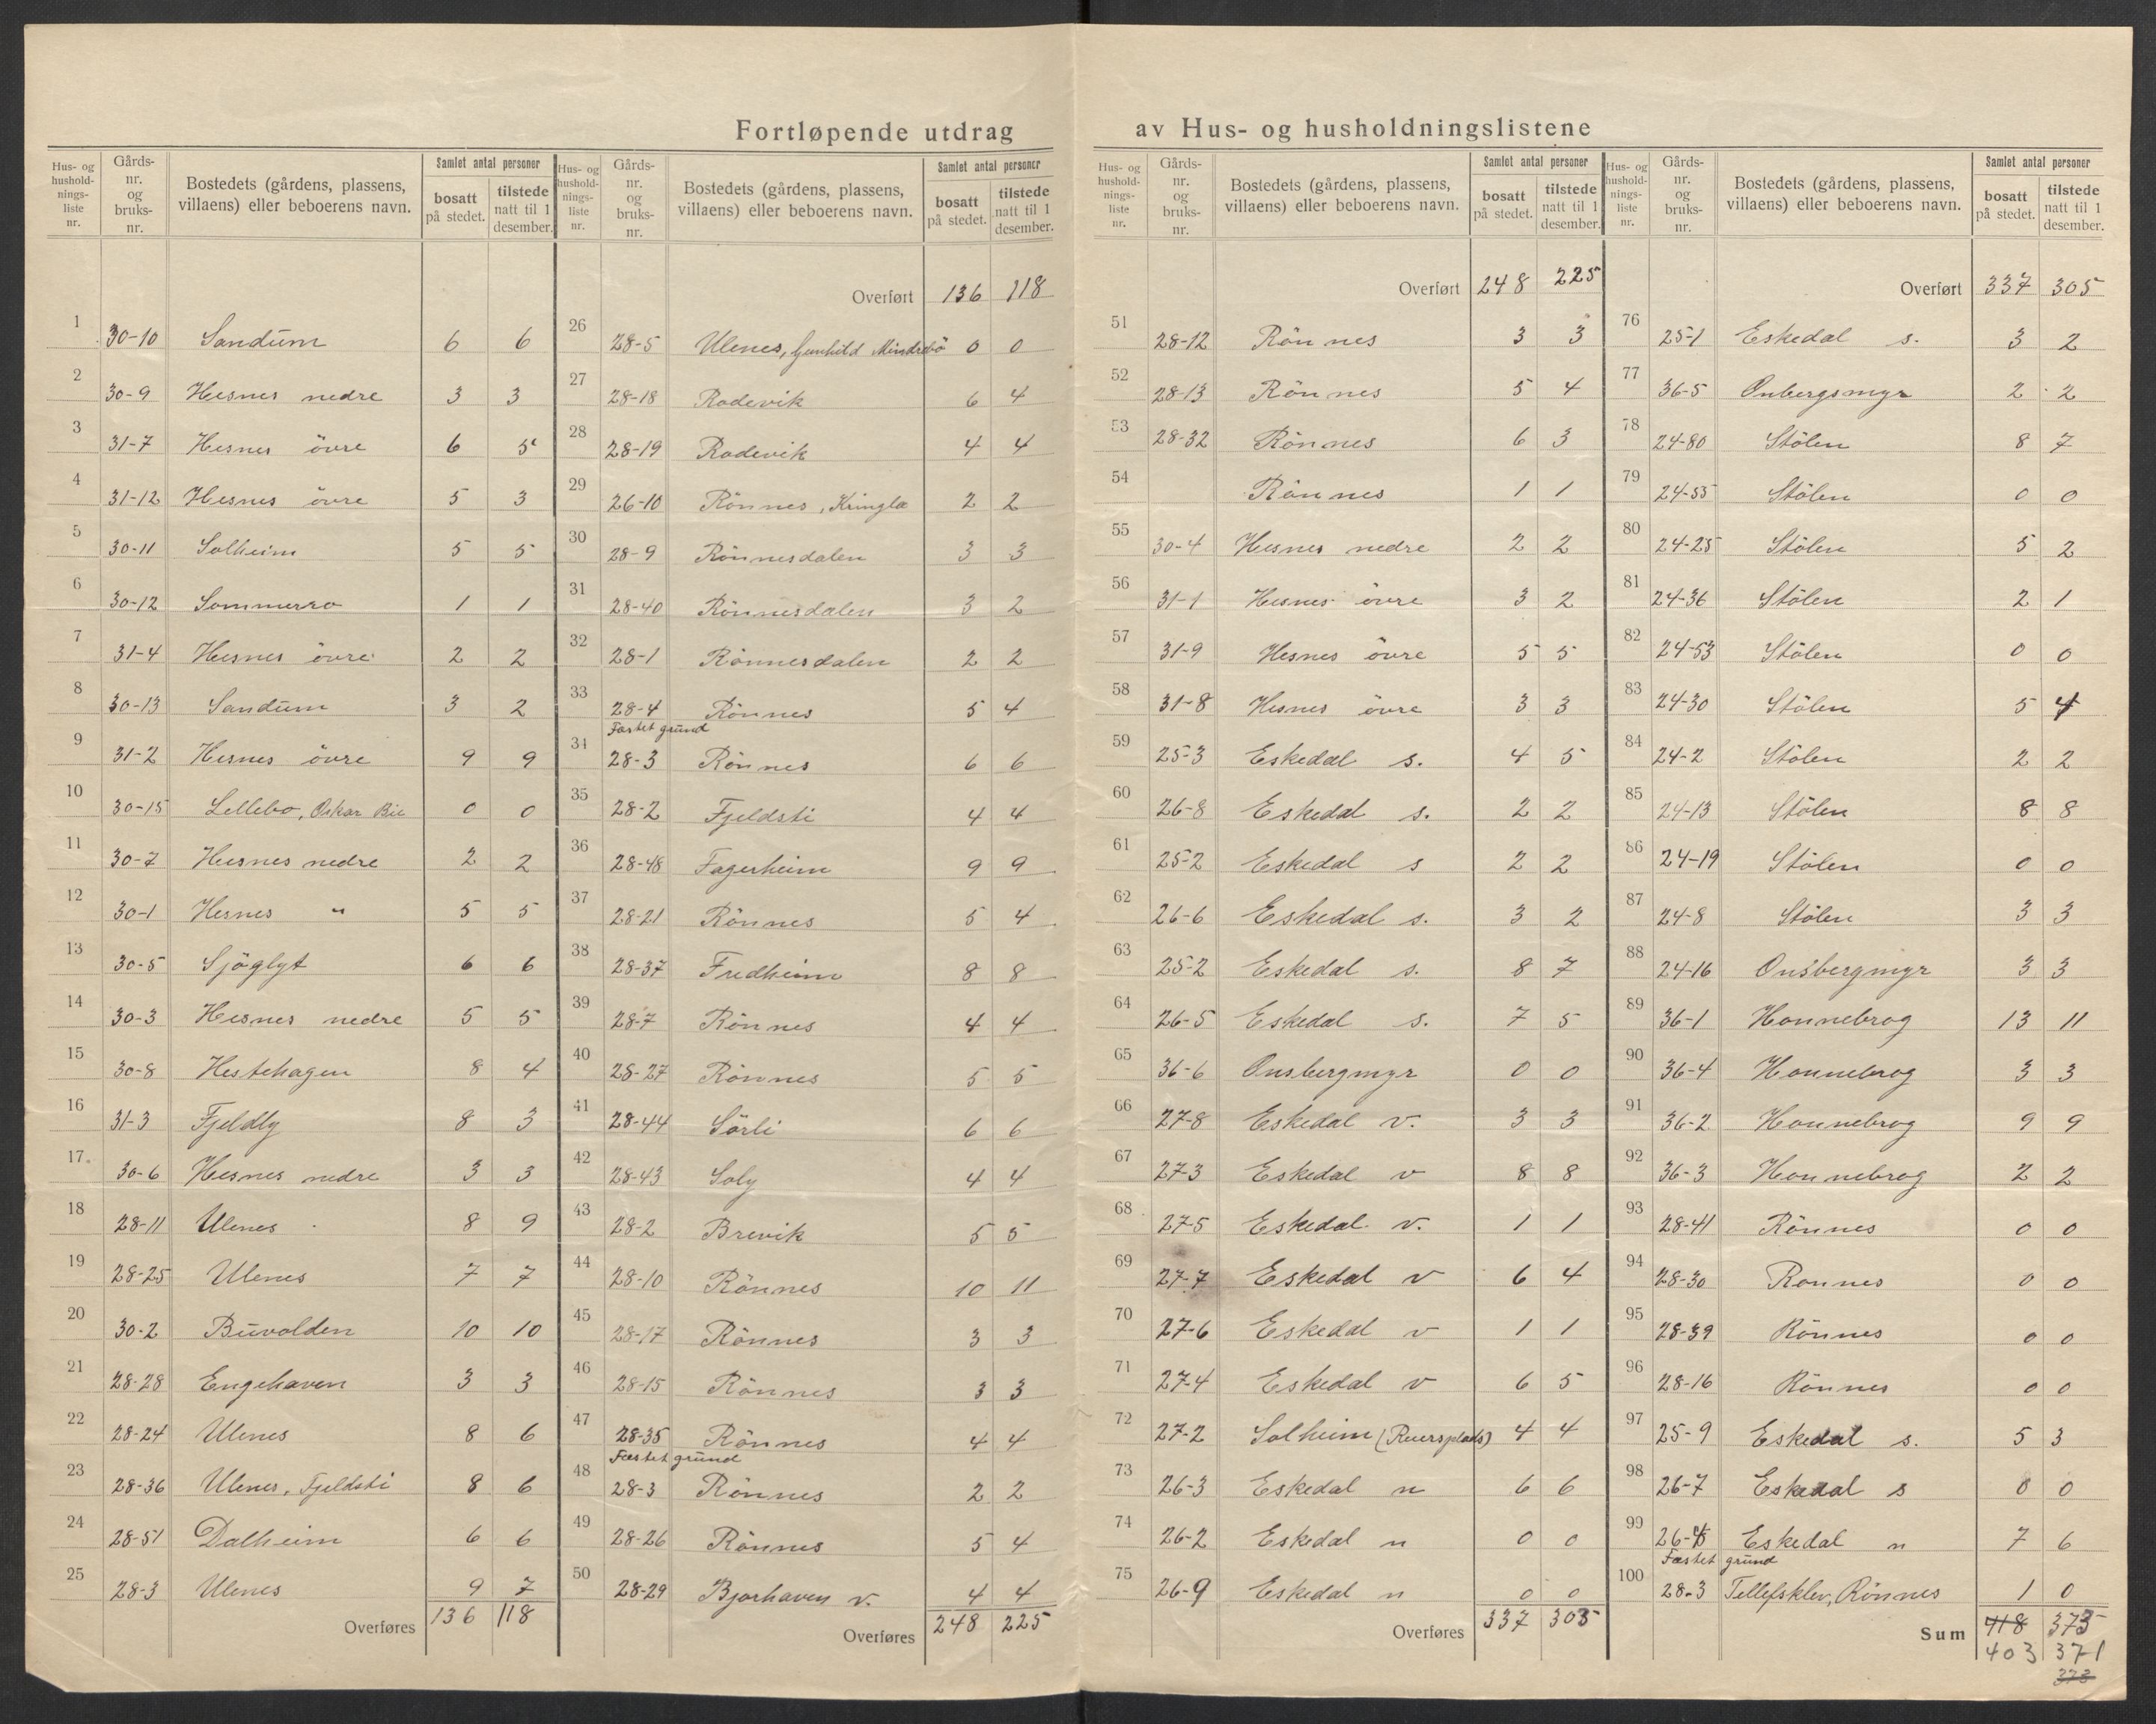 Fortløpende utdrag av Hus- og husholdningslistene
Hus- og husholdnings-liste nr. | Gårds-nr. og bruks-nr. | Bostedets (gårdens, plassens, villaens) eller beboerens navn. | Samlet antal personer bosatt på stedet. | tilstede natt til 1 desember.
1 30-10 Sandum 6 6
2 30-9 Hesnes nedre 3 3
3 31-7 Hesnes övre 6 5
4 31-12 Hesnes övre 5 3
5 30-11 Solheim 5 5
6 30-12 Sommerro 1 1
7 31-4 Hesnes övre 2 2
8 30-13 Sandum 3 2
9 31-2 Hesnes övre 9 9
10 30-15 Lillebo, Oskar Bie 0 0
11 30-7 Hesnes nedre 2 2
12 30-1 Hesnes " 5 5
13 30-5 Sjöglyt 6 6
14 30-3 Hesnes nedre 5 5
15 30-8 Hestehagen 8 4
16 31-3 Fjeldly 8 3
17 30-6 Hesnes nedre 3 3
18 28-11 Ulenes 8 9
19 28-25 Ulenes 7 7
20 30-2 Buvolden 10 10
21 28-28 Engehaven 3 3
22 28-24 Ulenes 8 6
23 28-36 Ulenes, Fjeldsti 8 6
24 28-51 Dalheim 6 6
25 28-3 Ulenes 9 7
Overføres 136 118
Hus- og husholdnings-liste nr. | Gårds-nr. og bruks-nr. | Bostedets (gårdens, plassens, villaens) eller beboerens navn. | Samlet antal personer bosatt på stedet. | tilstede natt til 1 desember.
Overført 136 118
26 28-5 Ulenes, Gunhild Mindrebö 0 0
27 28-18 Rodevik 6 4
28 28-19 Rodevik 4 4
29 26-10 Rönnes, Kringla 2 2
30 28-9 Rönnesdalen 3 3
31 28-40 Rönnesdalen 3 2
32 28-1 Rönnesdalen 2 2
33 28-4 Rönnes 5 4
Fæstet grund
34 28-3 Rönnes 6 6
35 28-2 Fjeldsti 4 4
36 28-48 Fagerheim 9 9
37 28-21 Rönnes 5 4
38 28-37 Fredheim 8 8
39 28-7 Rönnes 4 4
40 28-27 Rönnes 5 5
41 28-44 Sörli 6 6
42 28-43 Soly 4 4
43 28-2 Brevik 5 5
44 28-10 Rönnes 10 11
45 28-17 Rönnes 3 3
46 28-15 Rönnes 3 3
47 28-35 Rönnes 4 4
Fæstet grund
48 28-3 Rönnes 2 2
49 28-26 Rönnes 5 4
50 28-29 Bjorhaven v. 4 4
Overføres 248 225
Hus- og husholdnings-liste nr. | Gårds-nr. og bruks-nr. | Bostedets (gårdens, plassens, villaens) eller beboerens navn. | Samlet antal personer bosatt på stedet. | tilstede natt til 1 desember.
Overført 248 225
51 28-12 Rönnes 3 3
52 28-13 Rönnes 5 4
53 28-32 Rönnes 6 3
54 Rönnes 1 1
55 30-4 Hesnes nedre 2 2
56 31-1 Hesnes övre 3 2
57 31-9 Hesnes övre 5 5
58 31-8 Hesnes övre 3 3
59 25-3 Eskedal s. 4 5
60 26-8 Eskedal s. 2 2
61 25-2 Eskedal s 2 2
62 26-6 Eskedal s. 3 2
63 25-2 Eskedal s. 8 7
64 26-5 Eskedal s. 7 5
65 36-6 Onsbergmyr 0 0
66 27-8 Eskedal v. 3 3
67 27-3 Eskedal v 8 8
68 27-5 Eskedal v. 1 1
69 27-7 Eskedal v 6 4
70 27-6 Eskedal v 1 1
71 27-4 Eskedal v 6 5
72 27-2 Solheim (Ruersplads) 4 4
73 26-3 Eskedal n 6 6
74 26-2 Eskedal n 0 0
75 26-9 Eskedal n 0 0
Overføres 337 305
Hus- og husholdnings-liste nr. | Gårds-nr. og bruks-nr. | Bostedets (gårdens, plassens, villaens) eller beboerens navn. | Samlet antal personer bosatt på stedet. | tilstede natt til 1 desember.
Overført 337 305
76 25-1 Eskedal s. 3 2
77 36-5 Onbergsmyr 2 2
78 24-80 Stölen 8 7
79 24-55 Stölen 0 0
80 24-25 Stölen 5 2
81 24-36 Stölen 2 1
82 24-53 Stölen 0 0
83 24-30 Stölen 5 4
84 24-2 Stölen 2 2
85 24-13 Stölen 8 8
86 24-19 Stölen 0 0
87 24-8 Stölen 3 3
88 24-16 Onsbergmyr 3 3
89 36-1 Honnebrog 13 11
90 36-4 Honnebrog 3 3
91 36-2 Honnebrog 9 9
92 36-3 Honnebrog 2 2
93 28-41 Rönnes 0 0
94 28-30 Ronnes 0 0
95 28-39 Rönnes 0 0
96 28-16 Rönnes 0 0
97 25-9 Eskedal s. 5 3
98 26-7 Eskedal s 0 0
99 Eskedal n 7 6
Fæstet grund
100 28-3 Tellefsklev, Rönnes 1 0
Sum 418 373
403 371
373